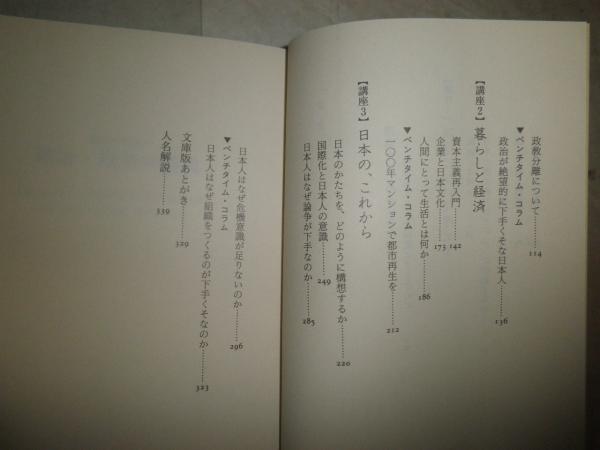 政教分離について……114
▼ベンチタイム・コラム
政治が絶望的に下手くそな日本人……136
【講座2】暮らしと経済
資本主義再入門……142
企業と日本文化……173
人間にとって生活とは何か……186
▼ベンチタイム・コラム
一〇〇年マンションで都市再生を……212
【講座3】日本の、これから
日本のかたちを、どのように構想するか……220
国際化と日本人の意識……249
日本人はなぜ論争が下手なのか……285
日本人はなぜ危機意識が足りないのか……296
▼ベンチタイム・コラム
日本人はなぜ組織をつくるのが下手くそなのか……323
文庫版あとがき……329
人名解説……339